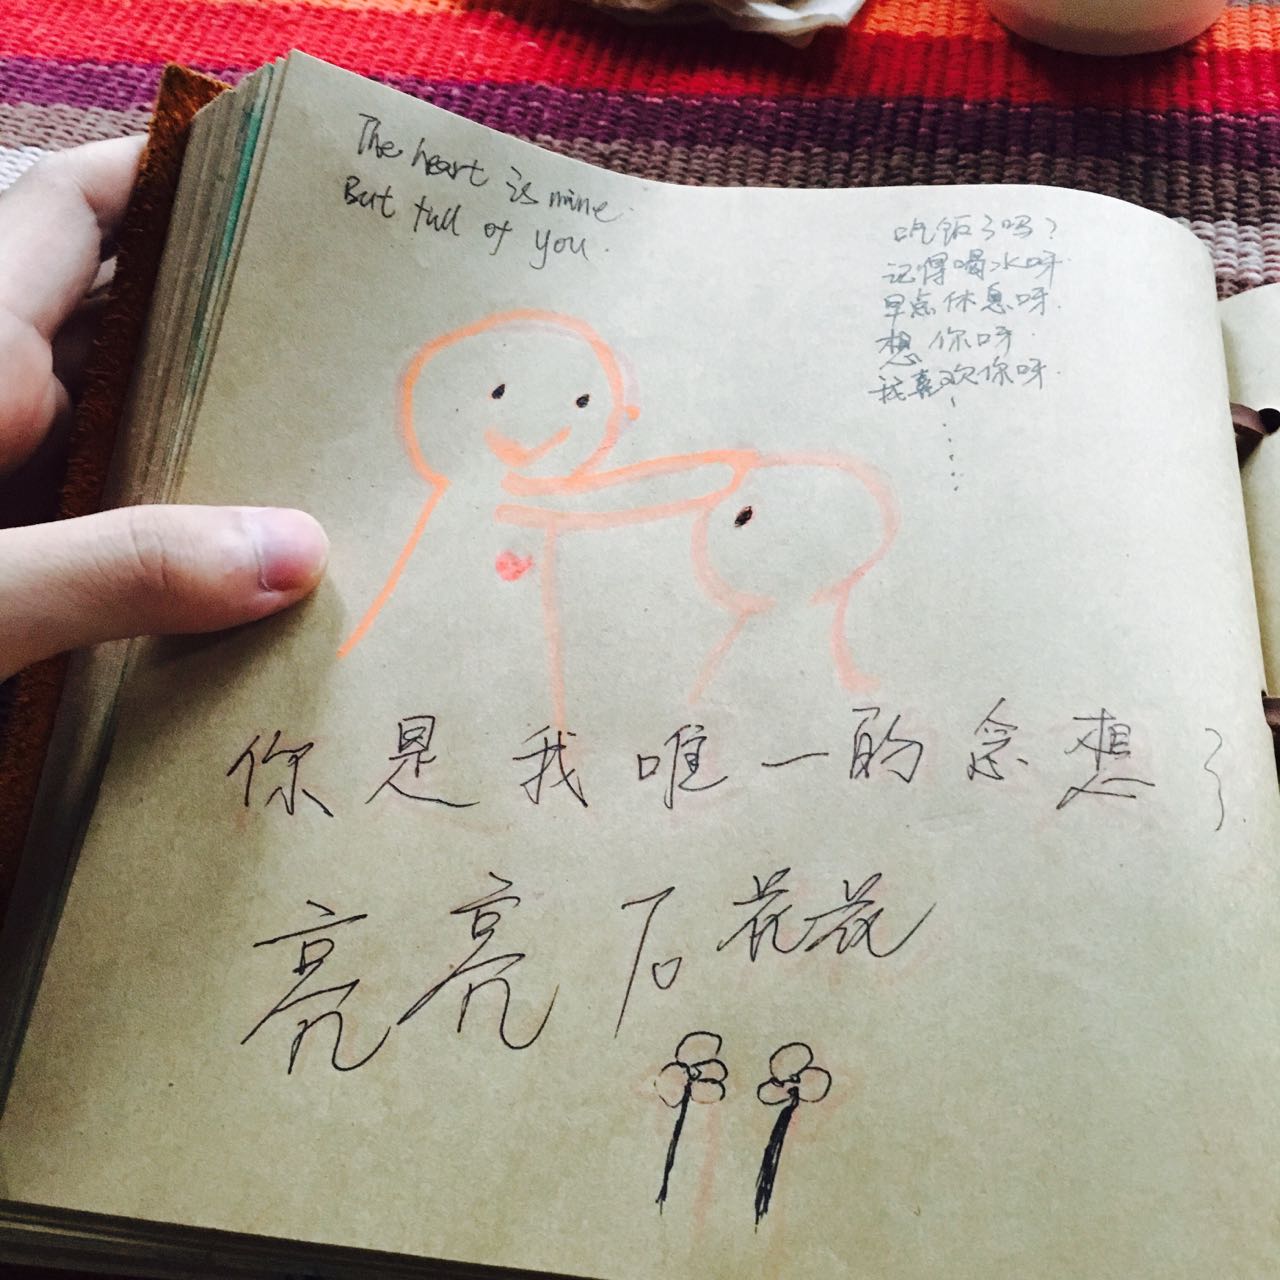 The heart is mine.
But full of you.
吃饭了吗？
记得喝水呀.
早点休息呀.
想你呀.
我喜欢你呀.
......
你是我唯一的念想了
亮亮 花花